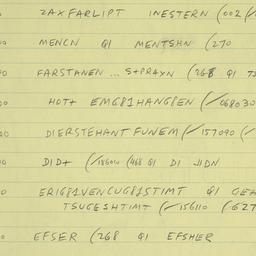 00 ZAXFARLIPT INESTERN (002
00 MENCN QI MENTSHN (270
00 FARSTANEN ... S+PRAYN (268 QI
00 HOT+ EMG81HANG8EN (/068030
00 DIERSTEHANT FUNEM (/157090 (/
00 DID+ (/186010 (468 QI DI
0 ERIG81VENCUG81STIMT QI GEH
TSUGESHTIMT (/156110 (/627
0 EFSER (268 QI EFSHER